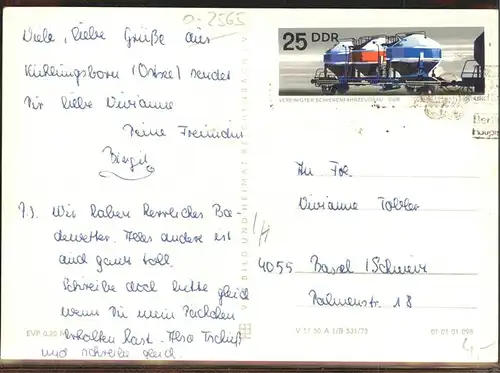 0-2565
Viele, liebe Grüße aus
Kühlungsborn (Ostsee) sendet
Dir liebe Vivianne
Deine Freundin
Birgit
P.S. Wir haben herrliches Ba-
dewetter. Alles andere ist
auch ganz toll.
Schreibe doch bitte gleich
wenn Du mein Päckchen
erhalten hast. Also Tschüß
und schreibe gleich.
EVP 0,20 M
BILD UND HEIMAT REICHENBACH
25 DDR
VEREINIGTER SCHIENENFAHRZEUGBAU · DDR
Berli
haup
An Frl.
Vivianne Tobler
4055 Basel /Schweiz
Palmenstr. 18
V 11 50 A 1/B 531/73
01 01 01 098
4,-